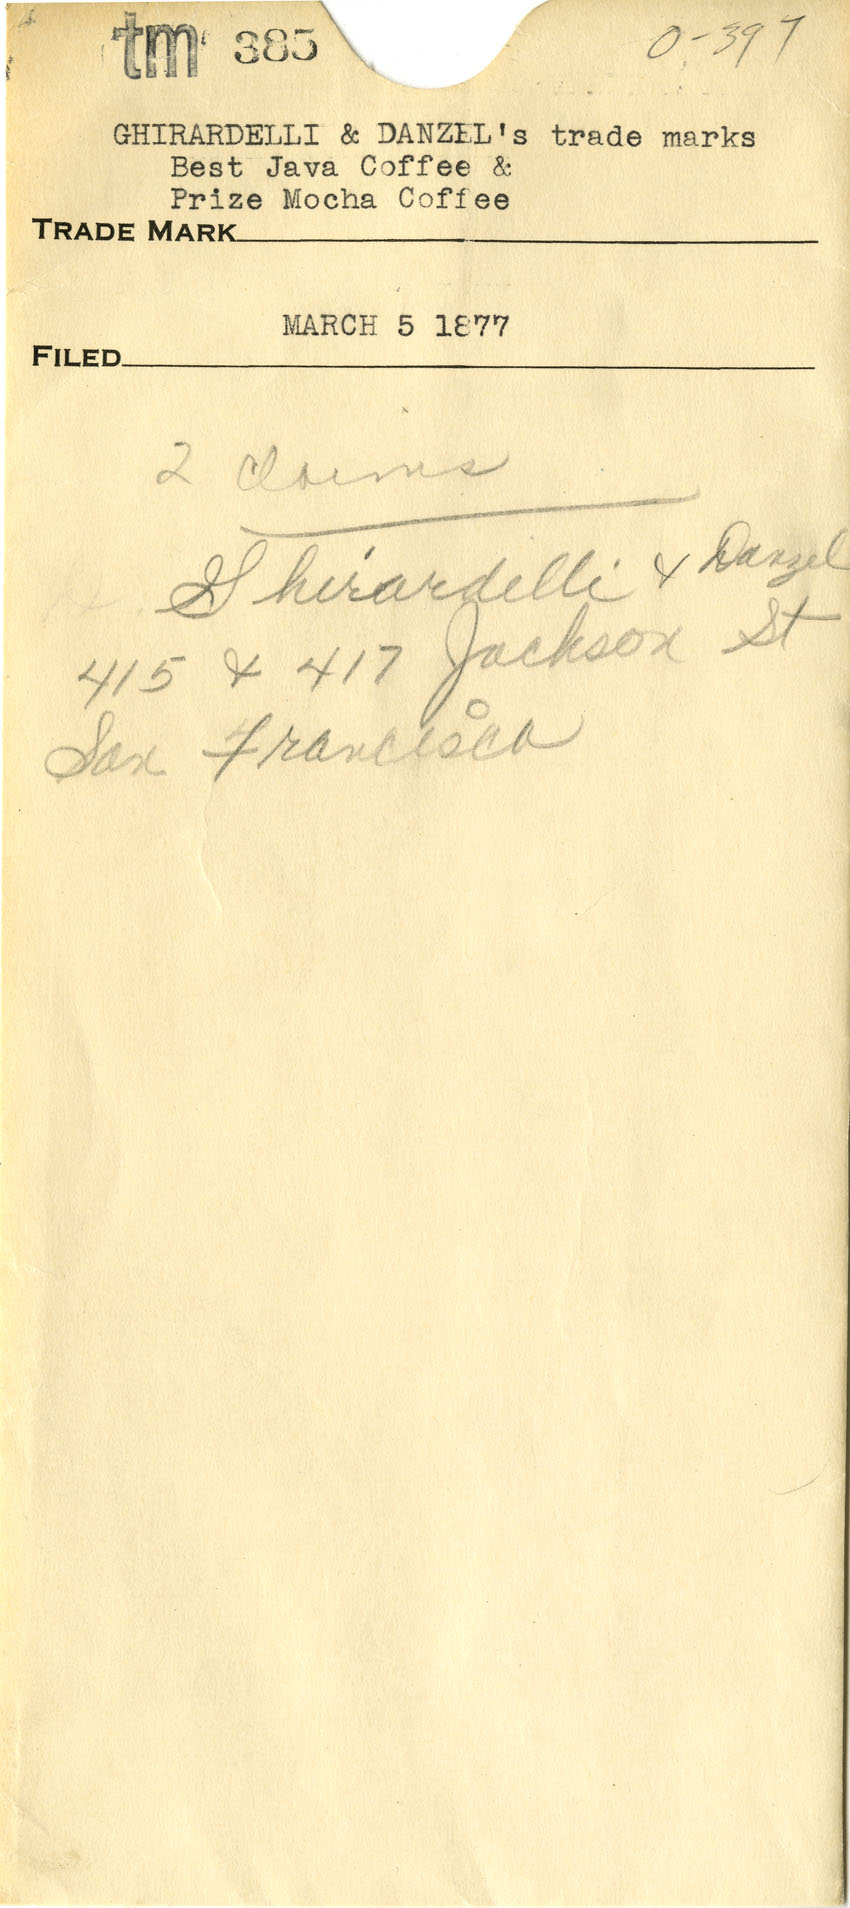 tm 385
O-397
GHIRARDELLI & DANZEL's trade marks
Best Java Coffee &
Prize Mocha Coffee
TRADE MARK
MARCH 5 1877
FILED
2 Claims
Ghirardelli & Danzel
415 & 417 Jackson St
San Francisco